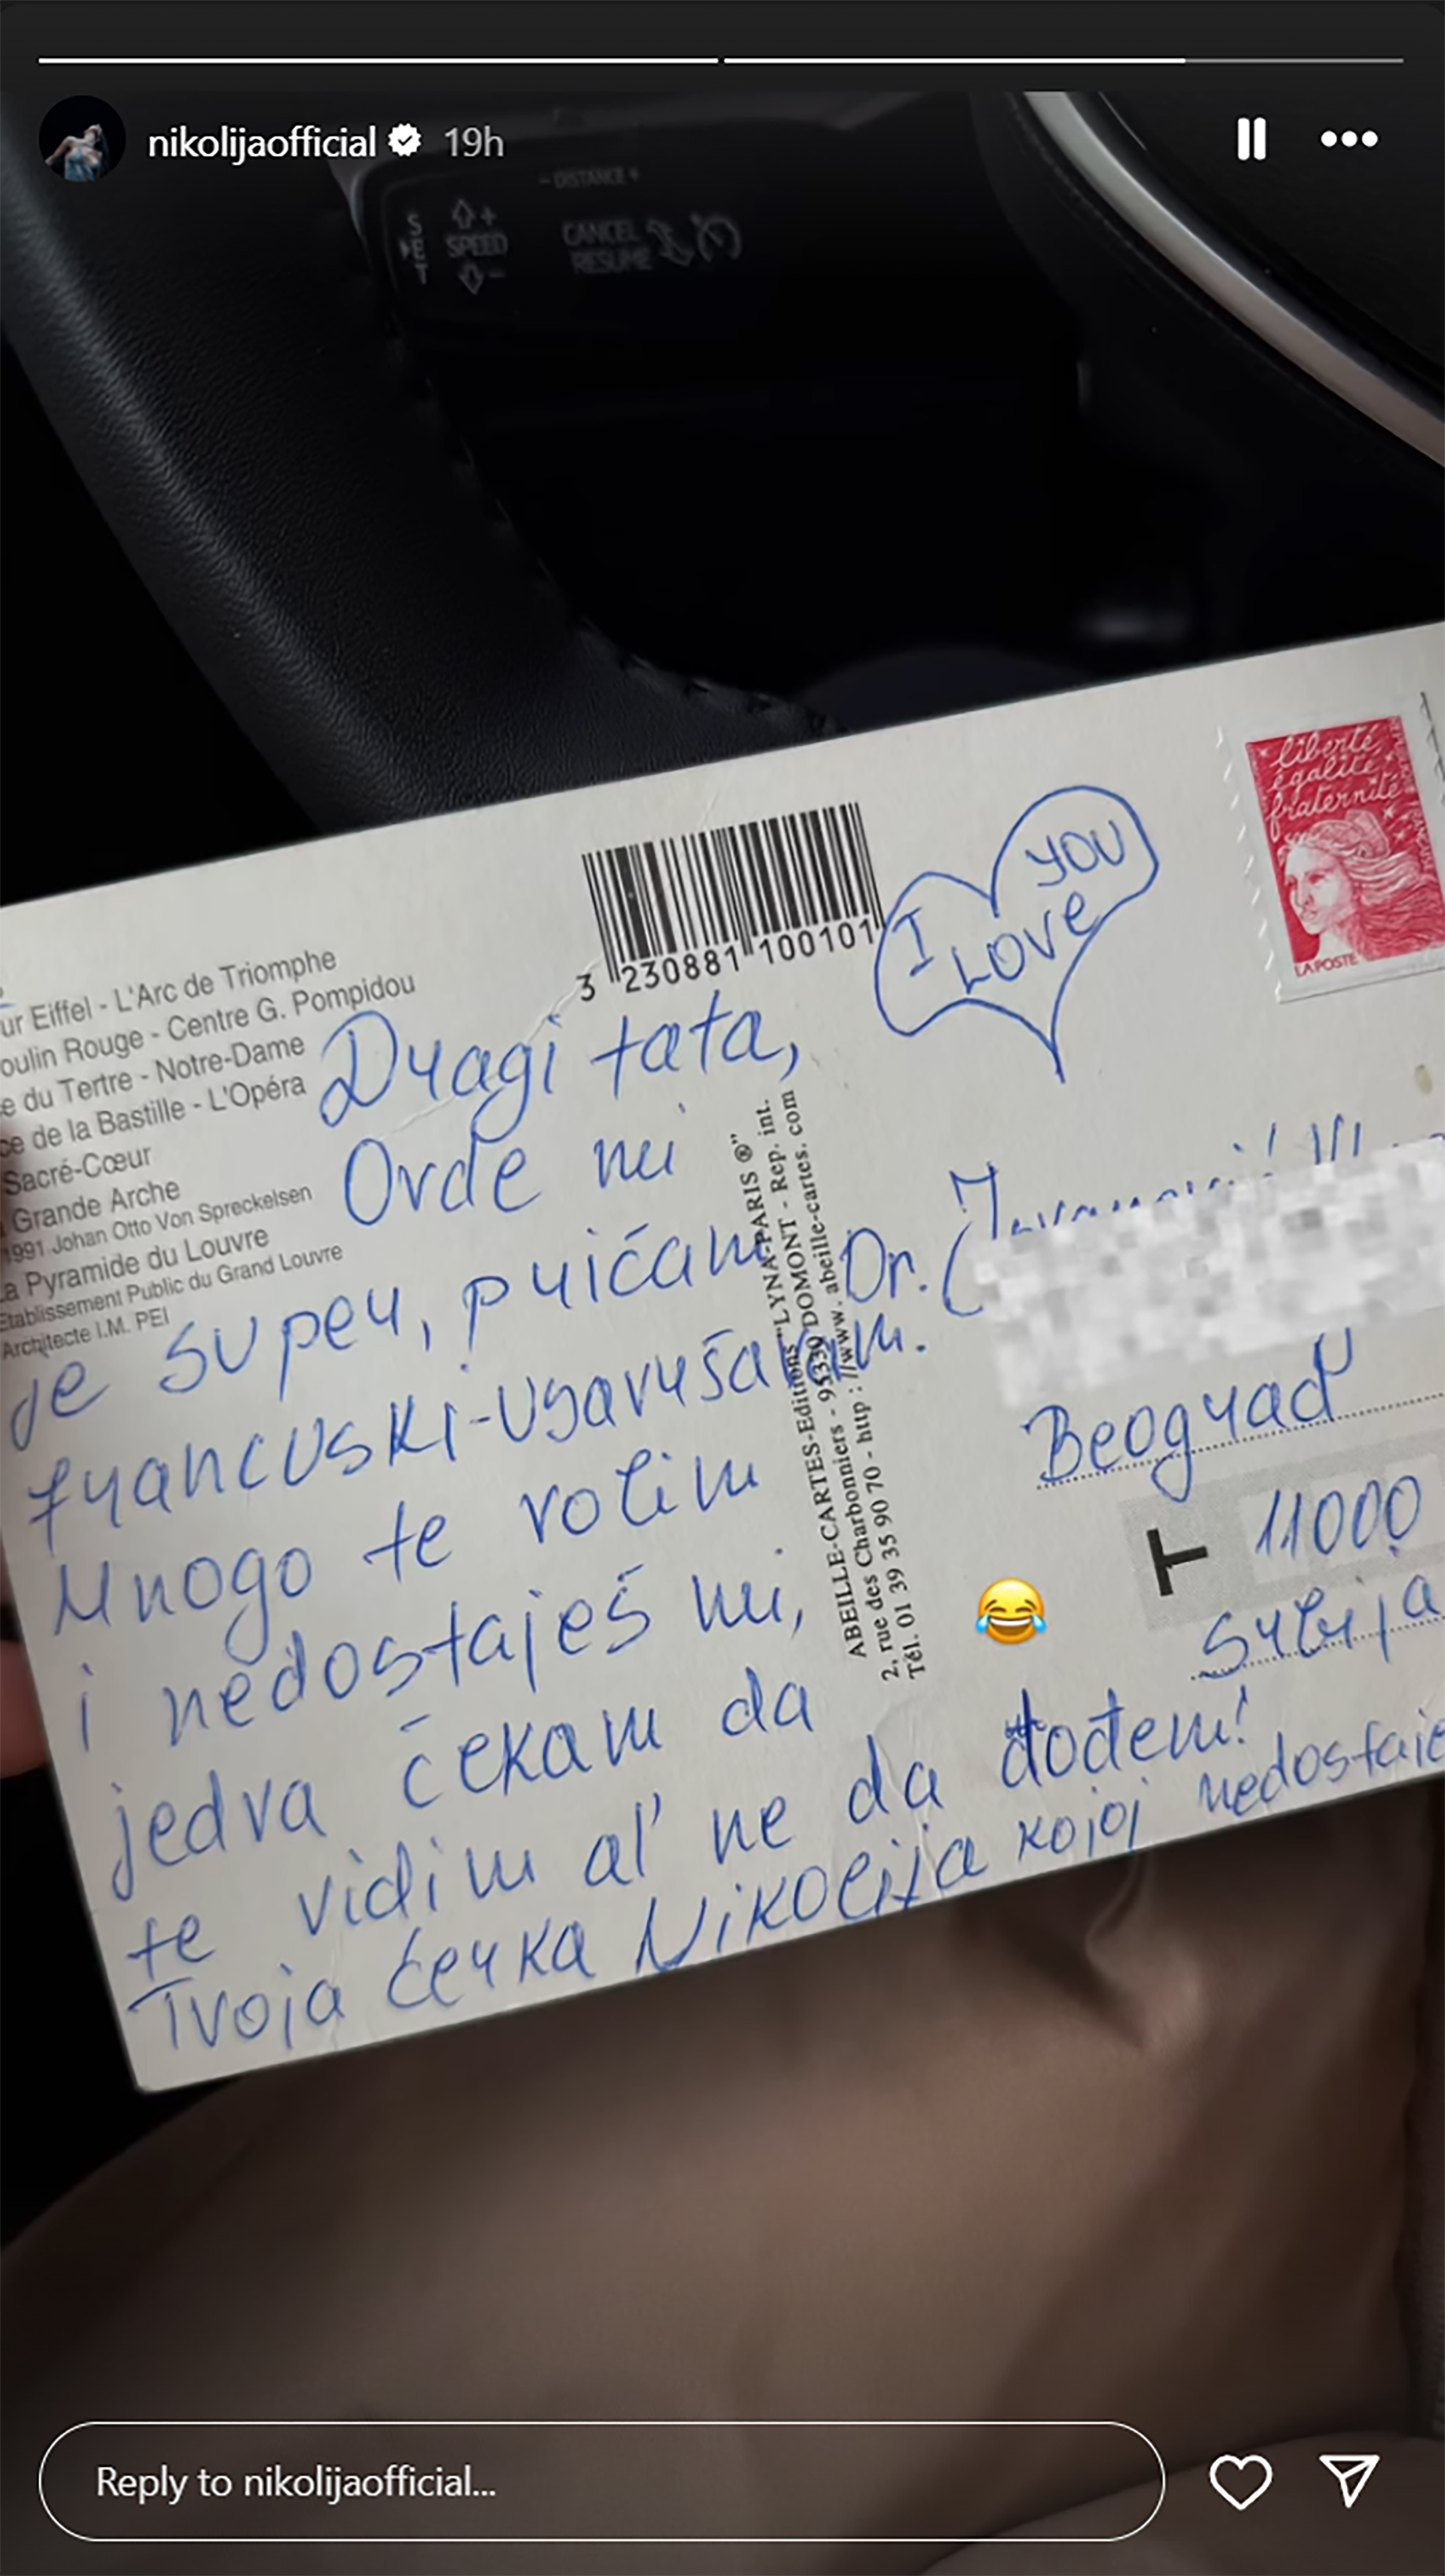 nikolijaofficial 19h
- DISTANCE +
SET
+
SPEED
-
CANCEL
RESUME
liberté
égalité
fraternité
LA POSTE
I LOVE YOU
3 230881 100101
ur Eiffel - L'Arc de Triomphe
oulin Rouge - Centre G. Pompidou
e du Tertre - Notre-Dame
ce de la Bastille - L'Opéra
Sacré-Cœur
Grande Arche
1991 Johan Otto Von Spreckelsen
La Pyramide du Louvre
Etablissement Public du Grand Louvre
Architecte I.M. PEI
Dragi tata,
Ovde mi
je super, prićam
francuski-usavršavam.
Mnogo te volim
i nedostaješ mi,
jedva čekam da
te vidim al' ne da dođem!
Tvoja ćerka Nikolija kojoj nedostaje
ABEILLE-CARTES-Editions "LYNA-PARIS ®"
2, rue des Charbonniers - 95330 DOMONT - Rep. int.
Tél. 01 39 35 90 70 - http : //www. abeille-cartes. com
Dr.
Beograd
T 11000
Srbija
Reply to nikolijaofficial...